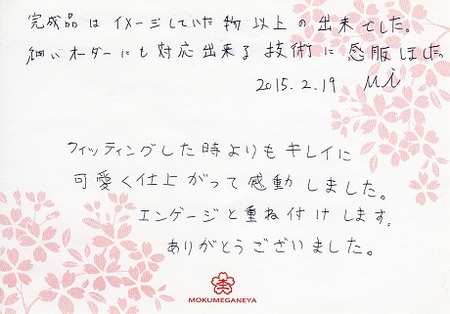 完成品はイメージしていた物以上の出来でした。
細いオーダーにも対応出来る技術に感服しました。
2015.2.19
フィッティングした時よりもキレイに
可愛く仕上がって感動しました。
エンゲージと重ね付けします。
ありがとうございました。
MOKUMEGANEYA